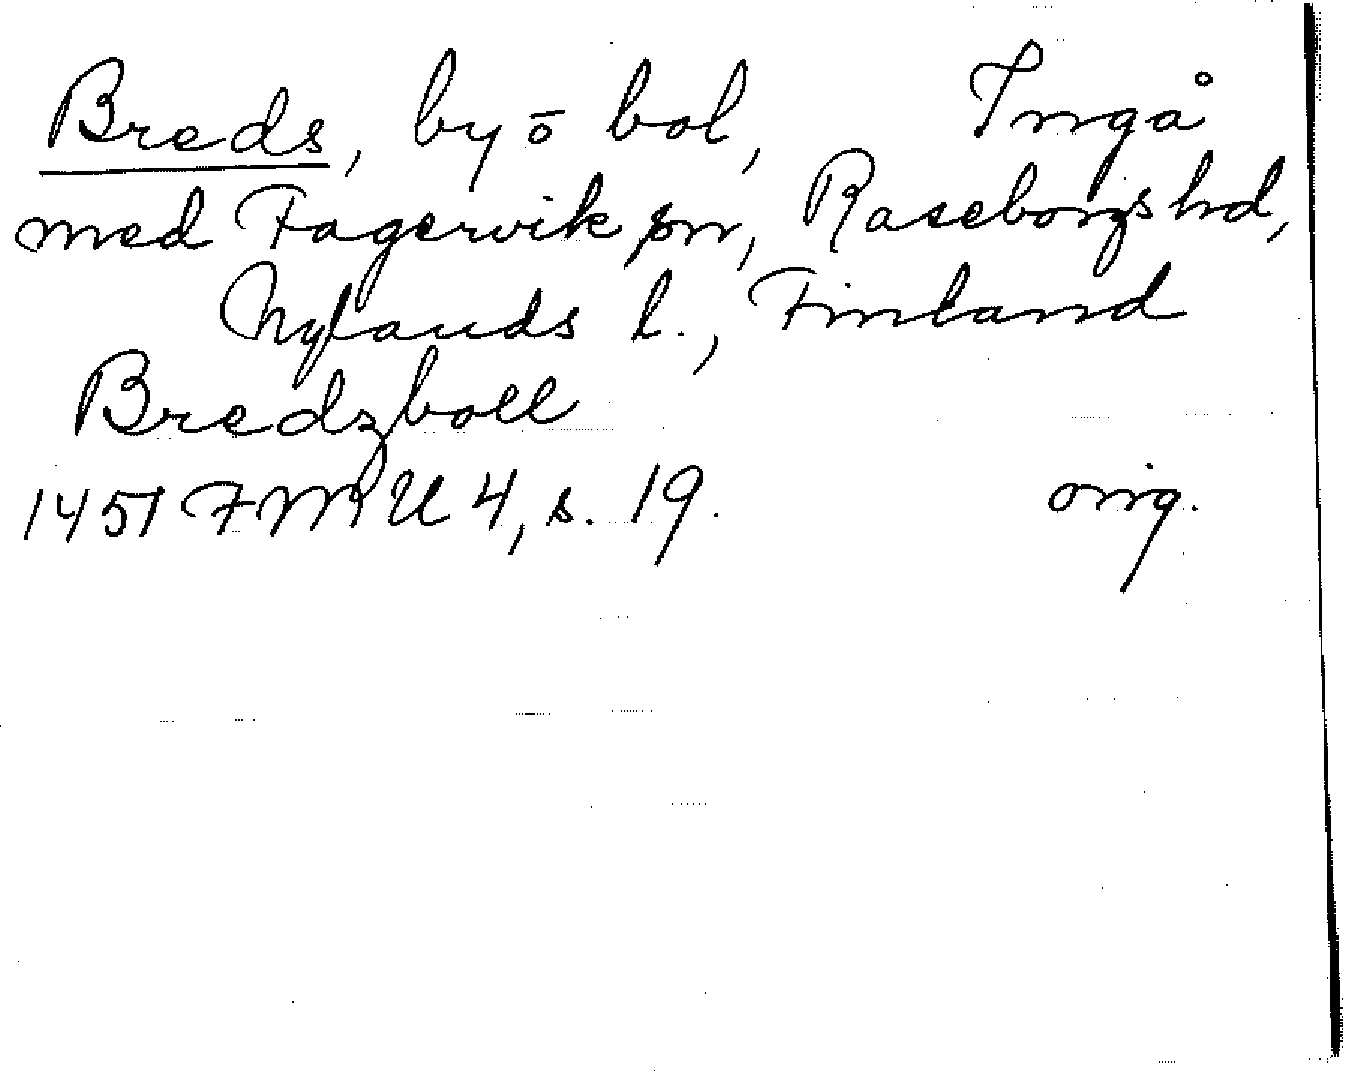 Breds, by ō bol, Ingå
med Fagervik sn, Raseborgs hd,
Nylands l., Finland
Bredzboll
1451 FMU 4, s. 19. orig.